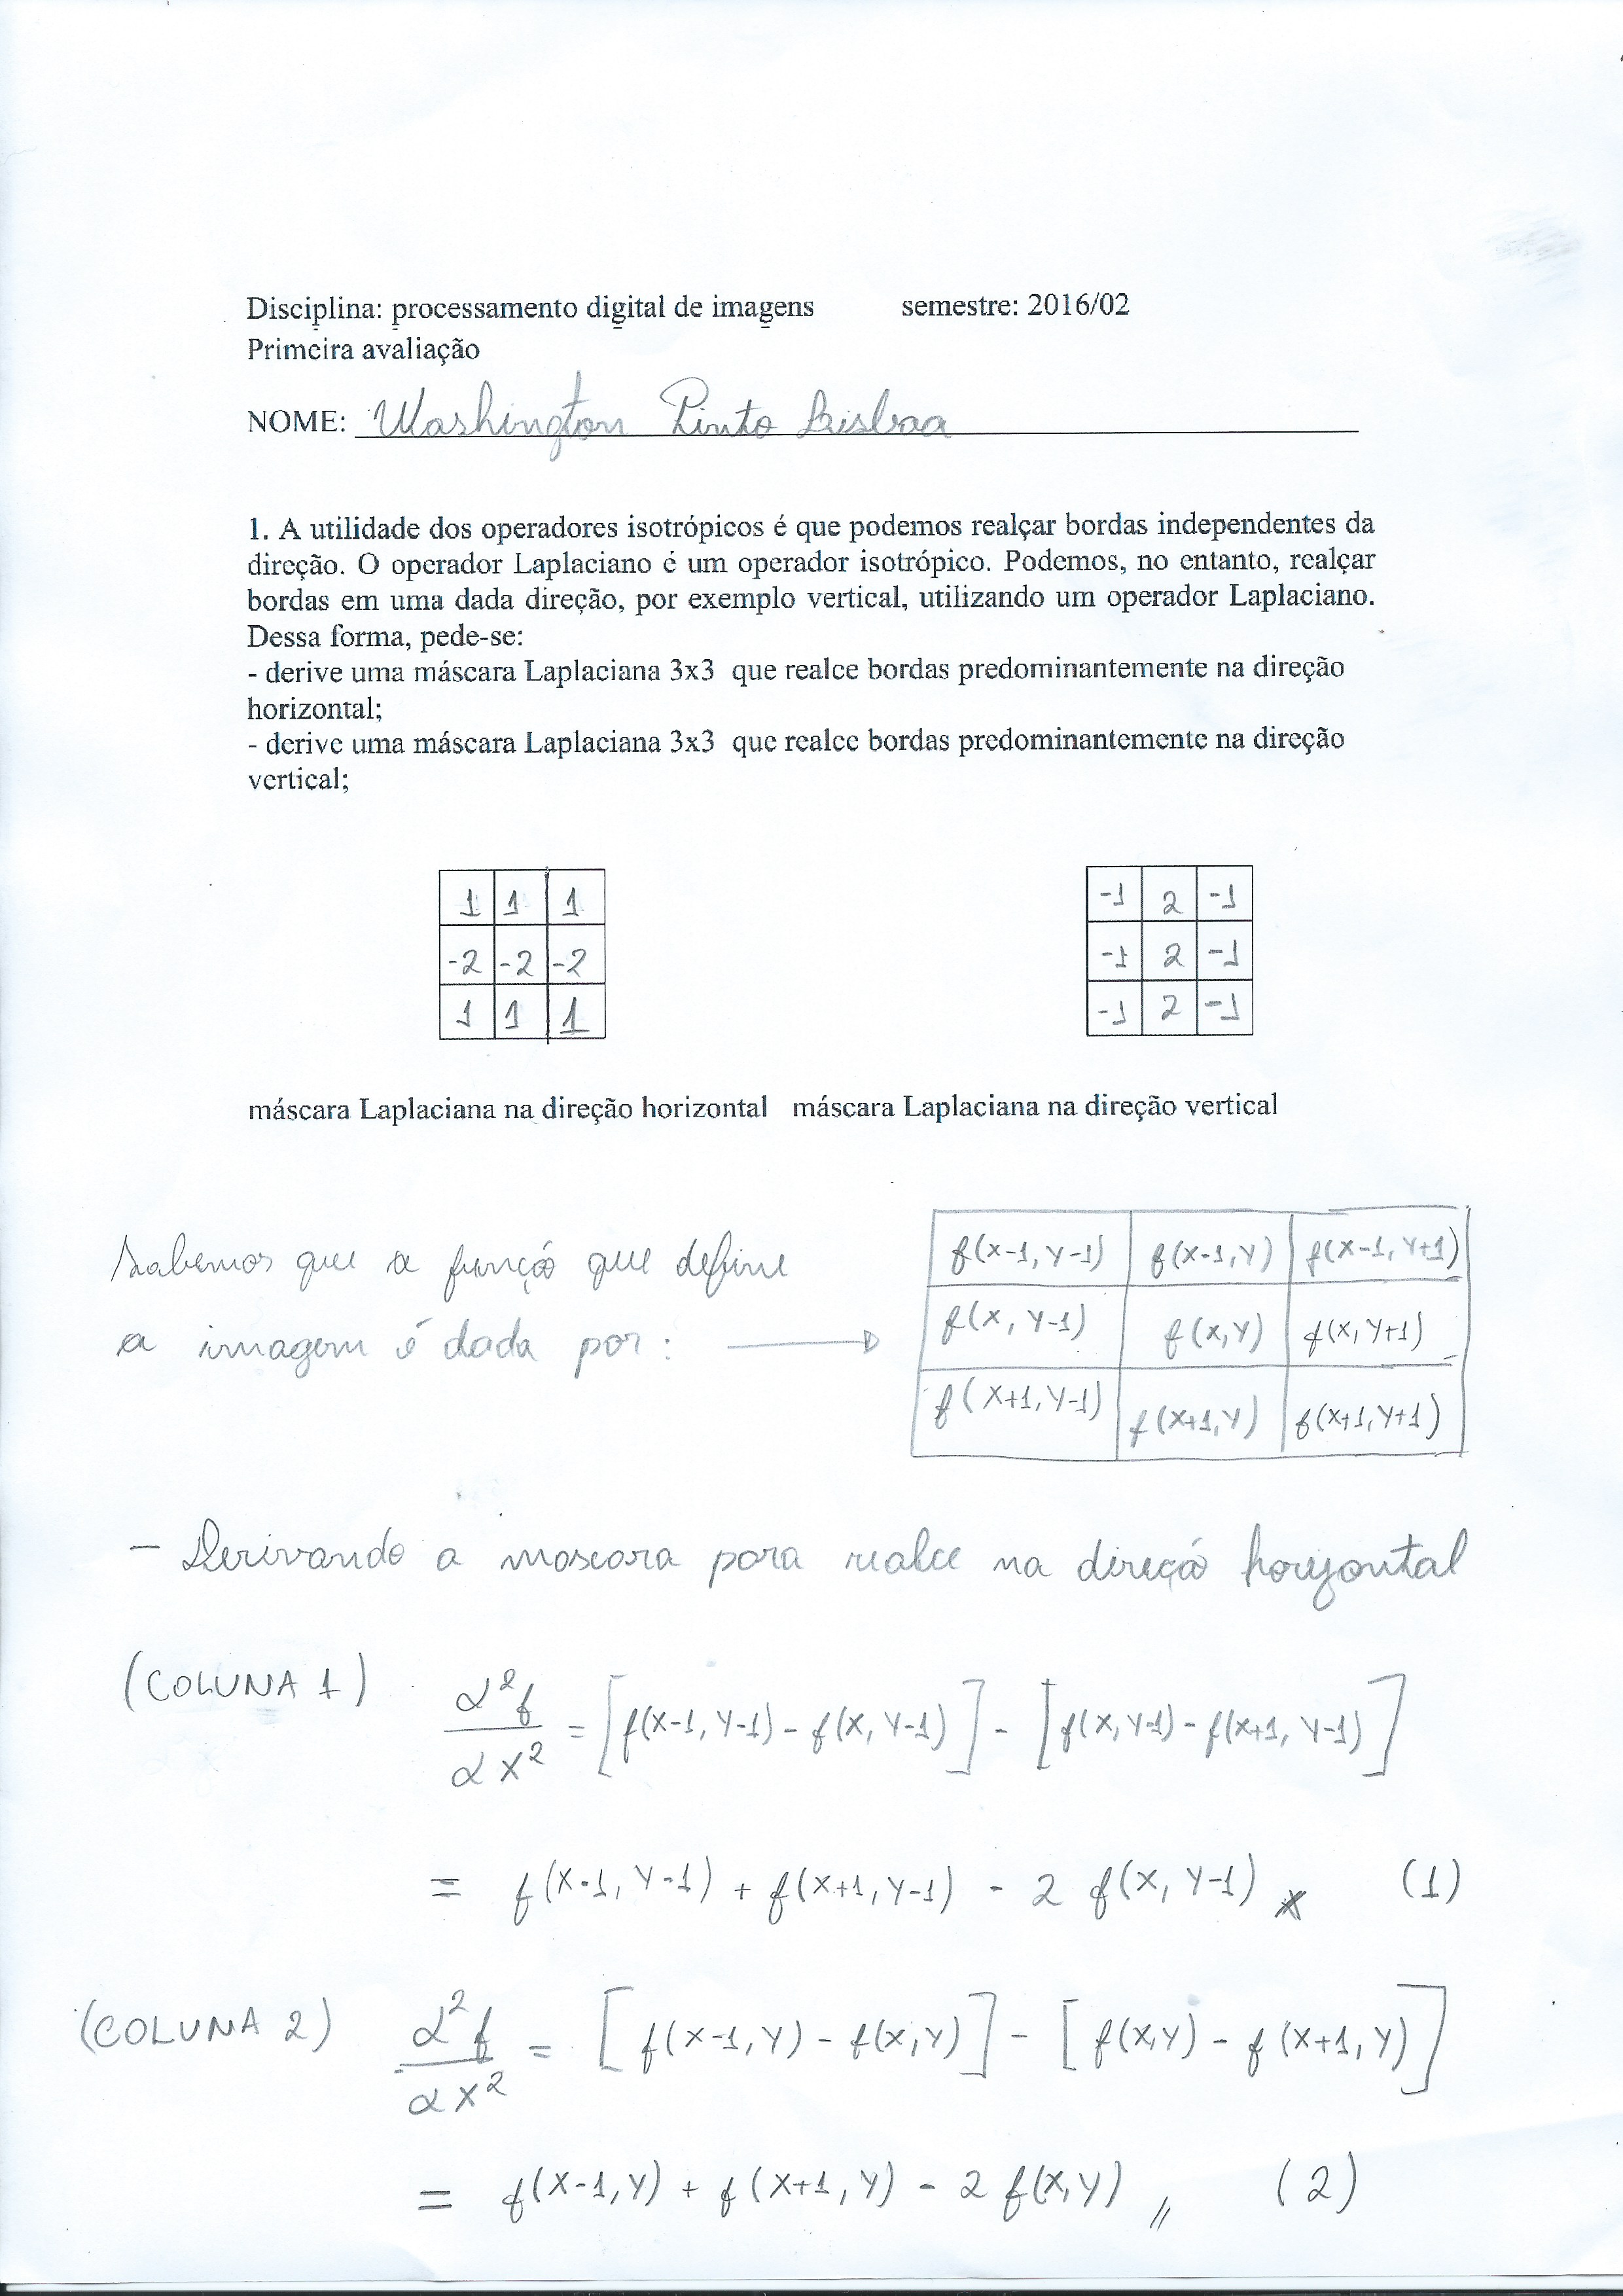 Disciplina: processamento digital de imagens semestre: 2016/02
Primeira avaliação
NOME: Washington Pinto Lisboa
1. A utilidade dos operadores isotrópicos é que podemos realçar bordas independentes da
direção. O operador Laplaciano é um operador isotrópico. Podemos, no entanto, realçar
bordas em uma dada direção, por exemplo vertical, utilizando um operador Laplaciano.
Dessa forma, pede-se:
- derive uma máscara Laplaciana 3x3 que realce bordas predominantemente na direção
horizontal;
- derive uma máscara Laplaciana 3x3 que realce bordas predominantemente na direção
vertical;
1 1 1
-2 -2 -2
1 1 1
-1 2 -1
-1 2 -1
-1 2 -1
máscara Laplaciana na direção horizontal máscara Laplaciana na direção vertical
Sabemos que a função que define
a imagem é dada por:
f(x-1, y-1) f(x-1, y) f(x-1, y+1)
f(x, y-1) f(x, y) f(x, y+1)
f(x+1, y-1) f(x+1, y) f(x+1, y+1)
- Derivando a mascara para realce na direçã horizontal
(COLUNA 1) ∂²f/∂x² = [f(x-1, y-1) - f(x, y-1)] - [f(x, y-1) - f(x+1, y-1)]
= f(x-1, y-1) + f(x+1, y-1) - 2 f(x, y-1) (1)
(COLUNA 2) ∂²f/∂x² = [f(x-1, y) - f(x, y)] - [f(x, y) - f(x+1, y)]
= f(x-1, y) + f(x+1, y) - 2 f(x, y) // (2)